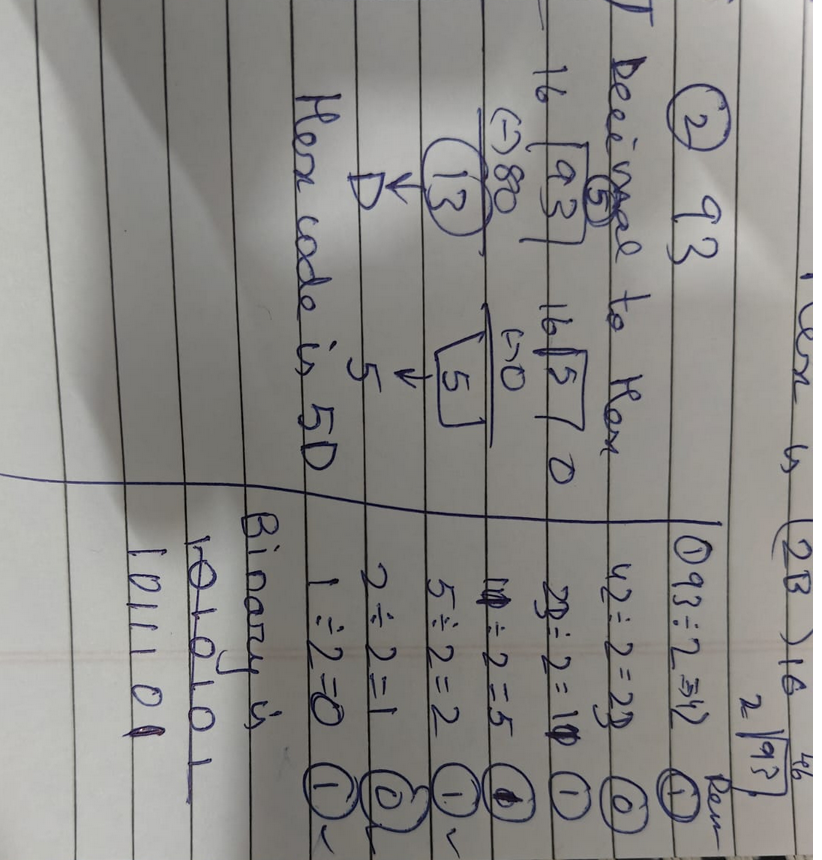 Hex is (2B)16
② 93
Decimal to Hex
16 93 5
(-) 80
13
↓
D
16 5 0
(-) 0
5
↓
5
Hex code is 5D
46
2 93
Rem
① 93 ÷ 2 = 42 ①
42 ÷ 2 = 23 ⓪
23 ÷ 2 = 11 ①
÷ 2 = 5 ①
5 ÷ 2 = 2 ① ✓
2 ÷ 2 = 1 ⓪ ✓
1 ÷ 2 = 0 ① ✓
Binary is
1010101
1011101